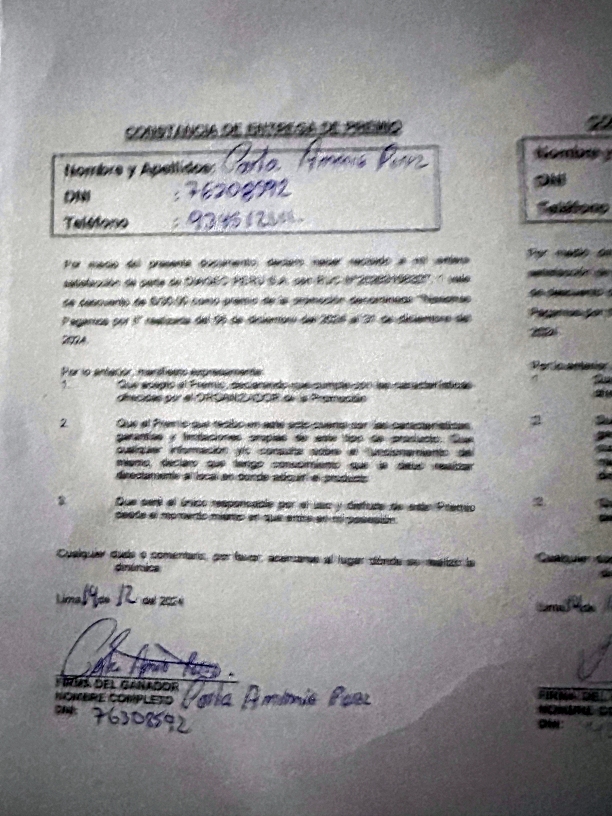 CONSTANCIA DE ENTREGA DE PREMIO
Nombre y Apellidos: Carla Perez
DNI : 76308592
Teléfono : 934612
Por medio del presente documento, declaro haber recibido a mi entera
satisfacción de parte de DIAGEO PERU S.A. con RUC 1 vale
de descuento de como premio de la promoción denominada "Nosotros
Pagamos por ti" realizada del 06 de diciembre del 2024 al 31 de diciembre del
2024.
Por lo anterior, manifiesto expresamente:
1. Que acepto el Premio, declarando que cumple con las características
ofrecidas por el ORGANIZADOR de la Promoción
2. Que el Premio que recibo en este acto cuenta con las características,
garantías y limitaciones propias de este tipo de producto. Que
cualquier información y/o consulta sobre el funcionamiento del
mismo, declaro que tengo conocimiento que la debo realizar
directamente al local en donde adquirí el producto.
3. Que seré el único responsable por el uso y disfrute de este Premio
desde el momento mismo en que entre en mi posesión.
Cualquier duda o comentario, por favor, acercarse al lugar dónde se realizó la
dinámica.
Lima 14 de 12 del 2024
FIRMA DEL GANADOR
NOMBRE COMPLETO Carla Perez
DNI: 76308592